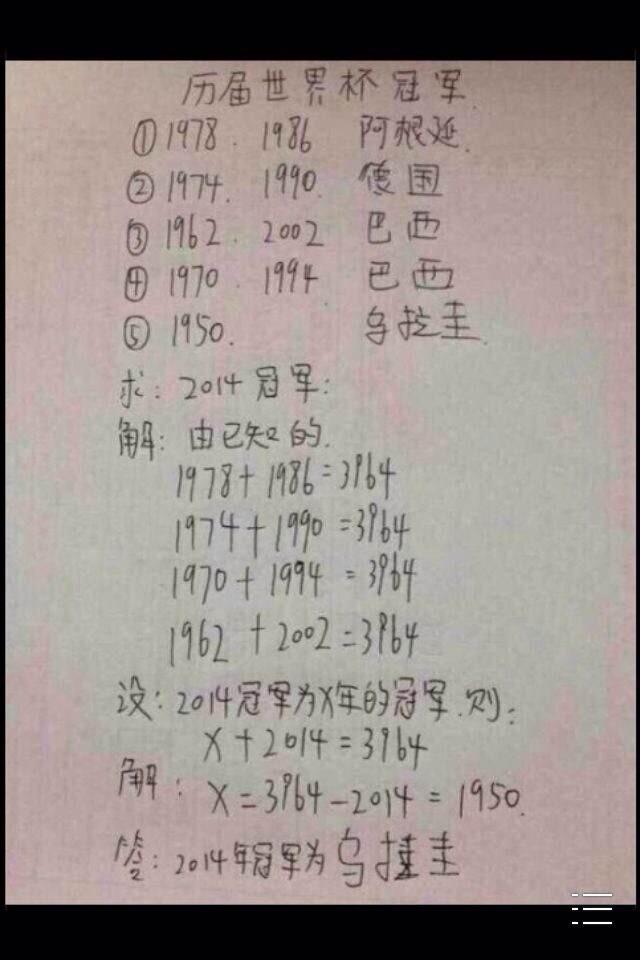 历届世界杯冠军.
①1978. 1986 阿根廷.
②1974. 1990. 德国
③1962. 2002 巴西
④1970. 1994 巴西
⑤1950. 乌拉圭.
求: 2014冠军:
解: 由已知的.
1978+1986=3964
1974+1990=3964
1970+1994=3964
1962+2002=3964
设: 2014冠军为X年的冠军.则:
X+2014=3964
解: X=3964-2014=1950.
答: 2014年冠军为乌拉圭